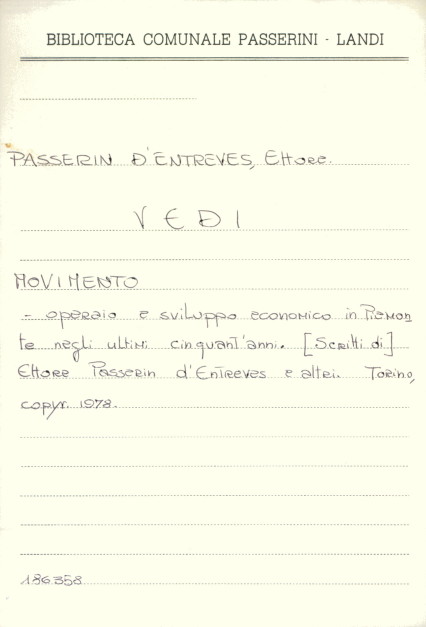 BIBLIOTECA COMUNALE PASSERINI - LANDI
PASSERIN D'ENTREVES, Ettore.
VEDI
MOVIMENTO
- operaio e sviluppo economico in Piemon
te negli ultimi cinquant'anni. [Scritti di]
Ettore Passerin d'Entreves e altri. Torino,
copyr. 1978.
186358